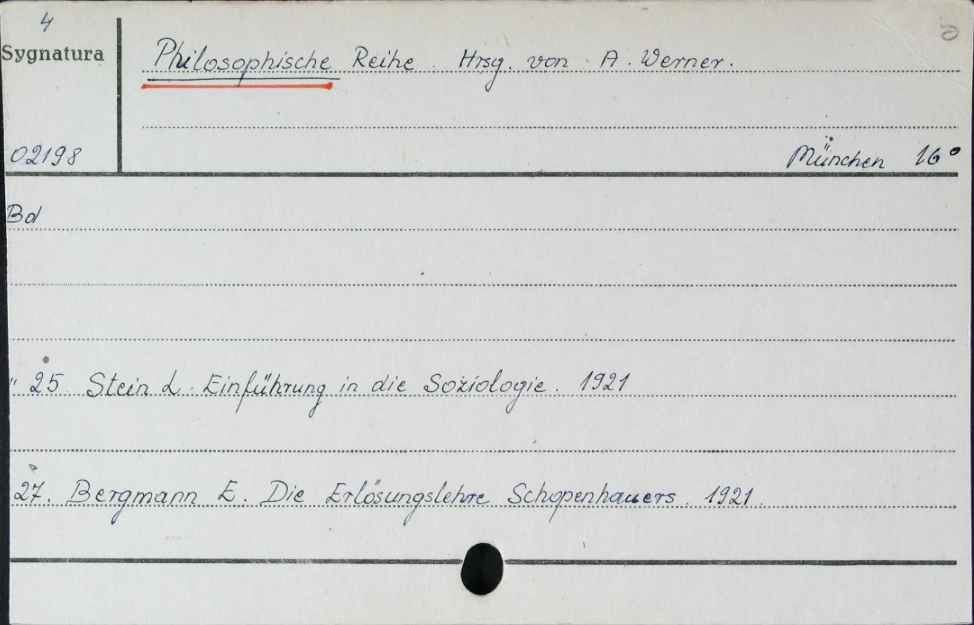 4
Sygnatura
Philosophische Reihe. Hrsg. von A. Werner.
02198
München 16°
Bd
" 25. Stein L. Einführung in die Soziologie. 1921
27. Bergmann E. Die Erlösungslehre Schopenhauers. 1921.